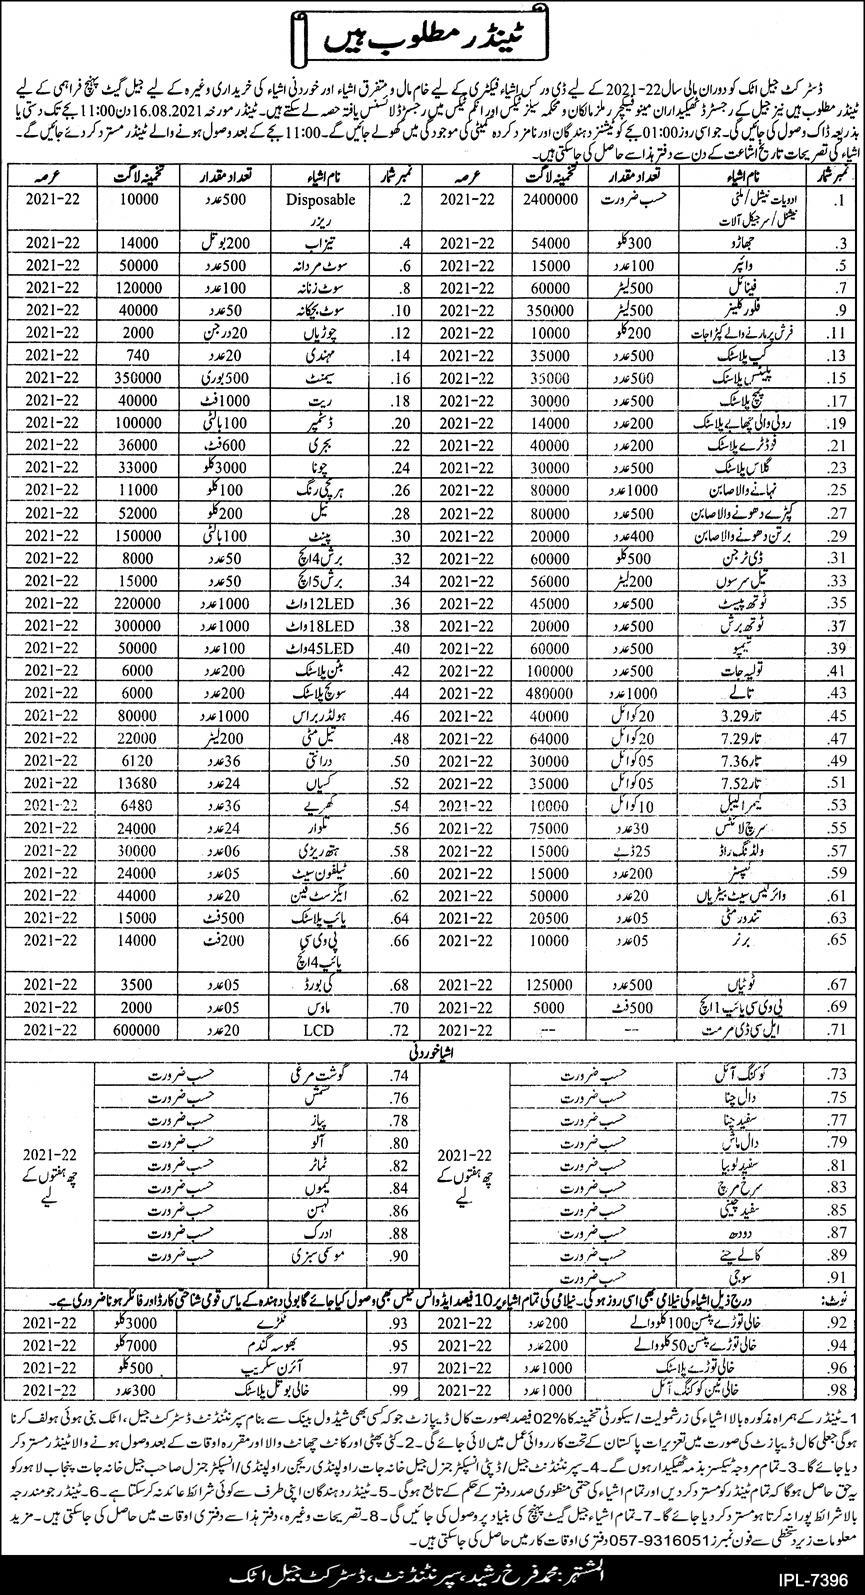 ٹینڈر مطلوب ہیں
ڈسٹرکٹ جیل اٹک کو دوران مالی سال 22-2021 کے لیے ڈی ورکس اشیاء فیکٹری کے لیے خام مال و متفرق اشیاء اور خوردنی اشیاء کی خریداری وغیرہ کے لیے جیل گیٹ پہنچ فراہمی کے لیے
ٹینڈر مطلوب ہیں نیز جیل کے رجسٹرڈ ٹھیکیداران مینوفیکچرر ملز مالکان و محکمہ سیلز ٹیکس اور انکم ٹیکس میں رجسٹرڈ لائسنس یافتہ حصہ لے سکتے ہیں۔ ٹینڈر مورخہ 16.08.2021 دن 11:00 بجے تک دستی یا
بذریعہ ڈاک وصول کی جائیں گی۔ جو اسی روز 01:00 بجے کوٹیشنز دہندگان اور نامزد کردہ کمیٹی کی موجودگی میں کھولے جائیں گے۔ 11:00 بجے کے بعد وصول ہونے والے ٹینڈر مسترد کر دئے جائیں گے۔
اشیاء کی تصریحات تاریخ اشاعت کے دن سے دفتر ہذا سے حاصل کی جا سکتی ہیں۔
نمبر شمار نام اشیاء تعداد مقدار تخمینہ لاگت عرصہ نمبر شمار نام اشیاء تعداد مقدار تخمینہ لاگت عرصہ
1. ادویات نیشنل/ملٹی نیشنل/سرجیکل آلات حسب ضرورت 2400000 2021-22 2. Disposable ریزر 500عدد 10000 2021-22
3. جھاڑو 300کلو 54000 2021-22 4. تیزاب 200بوتل 14000 2021-22
5. وائپر 100عدد 15000 2021-22 6. سوٹ مردانہ 500عدد 50000 2021-22
7. فینائل 500لیٹر 60000 2021-22 8. سوٹ زنانہ 100عدد 120000 2021-22
9. فلور کلینر 500لیٹر 350000 2021-22 10. سوٹ بچگانہ 50عدد 40000 2021-22
11. فرش پر مارنے والے کپڑا جات 200کلو 10000 2021-22 12. چوڑیاں 20درجن 2000 2021-22
13. کپ پلاسٹک 500عدد 35000 2021-22 14. مہندی 20عدد 740 2021-22
15. پلیٹس پلاسٹک 500عدد 35000 2021-22 16. سیمنٹ 500بوری 350000 2021-22
17. چمچ پلاسٹک 500عدد 30000 2021-22 18. ریت 1000فٹ 40000 2021-22
19. روٹی والی چھابے پلاسٹک 200عدد 14000 2021-22 20. ڈسٹمپر 100بالٹی 100000 2021-22
21. فوڈ ٹرے پلاسٹک 200عدد 40000 2021-22 22. بجری 600فٹ 36000 2021-22
23. گلاس پلاسٹک 500عدد 30000 2021-22 24. چونا 3000کلو 33000 2021-22
25. نہانے والا صابن 1000عدد 80000 2021-22 26. ہرمچی رنگ 100کلو 11000 2021-22
27. کپڑے دھونے والا صابن 500عدد 80000 2021-22 28. نیل 200کلو 52000 2021-22
29. برتن دھونے والا صابن 400عدد 20000 2021-22 30. پینٹ 100بالٹی 150000 2021-22
31. ڈی ٹرجن 500کلو 60000 2021-22 32. برش 4انچ 50عدد 8000 2021-22
33. تیل سرسوں 200لیٹر 56000 2021-22 34. برش 5انچ 50عدد 15000 2021-22
35. ٹوتھ پیسٹ 500عدد 45000 2021-22 36. 12LEDواٹ 1000عدد 220000 2021-22
37. ٹوتھ برش 500عدد 20000 2021-22 38. 18LEDواٹ 1000عدد 300000 2021-22
39. شیمپو 500عدد 60000 2021-22 40. 45LEDواٹ 100عدد 50000 2021-22
41. تولیہ جات 500عدد 100000 2021-22 42. بٹن پلاسٹک 200عدد 6000 2021-22
43. تالے 1000عدد 480000 2021-22 44. سوئچ پلاسٹک 200عدد 6000 2021-22
45. تار 3.29 20کوائل 40000 2021-22 46. ہولڈر براس 1000عدد 80000 2021-22
47. تار 7.29 20کوائل 64000 2021-22 48. تیل مٹی 200لیٹر 22000 2021-22
49. تار 7.36 05کوائل 30000 2021-22 50. درانتی 36عدد 6120 2021-22
51. تار 7.52 05کوائل 35000 2021-22 52. کسیاں 24عدد 13680 2021-22
53. کیمرا کیبل 10کوائل 10000 2021-22 54. کھرپے 36عدد 6480 2021-22
55. سرچ لائٹس 30عدد 75000 2021-22 56. تلوار 24عدد 24000 2021-22
57. ولڈنگ راڈ 25ڈبے 15000 2021-22 58. ہتھ ریڑی 06عدد 30000 2021-22
59. ٹیسٹر 200عدد 15000 2021-22 60. ٹیلفون سیٹ 05عدد 24000 2021-22
61. وائرلیس سیٹ بیٹریاں 20عدد 50000 2021-22 62. ایگزسٹ فین 20عدد 44000 2021-22
63. تندور مٹی 05عدد 20500 2021-22 64. پائپ پلاسٹک 500فٹ 15000 2021-22
65. برنر 05عدد 10000 2021-22 66. پی وی سی پائپ 4انچ 200فٹ 14000 2021-22
67. ٹوٹیاں 500عدد 125000 2021-22 68. کی بورڈ 05عدد 3500 2021-22
69. پی وی سی پائپ 1انچ 500فٹ 5000 2021-22 70. ماوس 05عدد 2000 2021-22
71. ایل سی ڈی مرمت -- -- 2021-22 72. LCD 20عدد 600000 2021-22
اشیا خوردنی
73. کوکنگ آئل حسب ضرورت 2021-22 چھ ہفتوں کے لیے 74. گوشت مرغی حسب ضرورت 2021-22 چھ ہفتوں کے لیے
75. دال چنا حسب ضرورت 76. کشمش حسب ضرورت
77. سفید چنا حسب ضرورت 78. پیاز حسب ضرورت
79. دال ماش حسب ضرورت 80. آلو حسب ضرورت
81. سفید لوبیا حسب ضرورت 82. ٹماٹر حسب ضرورت
83. سرخ مرچ حسب ضرورت 84. لیموں حسب ضرورت
85. سفید چینی حسب ضرورت 86. لہسن حسب ضرورت
87. دودھ حسب ضرورت 88. ادرک حسب ضرورت
89. کالے چنے حسب ضرورت 90. موسمی سبزی حسب ضرورت
91. سوجی حسب ضرورت
نوٹ: درج ذیل اشیاء کی نیلامی بھی اسی روز ہوگی۔ نیلامی کی تمام اشیاء پر 10 فیصد ایڈوانس ٹیکس بھی وصول کیا جائے گا بولی دہندہ کے پاس قومی شناختی کارڈ اور فائلر ہونا ضروری ہے۔
92. خالی توڑے پٹسن 100کلو والے 200عدد 2021-22 93. ٹکڑے 3000کلو 2021-22
94. خالی توڑے پٹسن 50کلو والے 200عدد 2021-22 95. بھوسہ گندم 7000کلو 2021-22
96. خالی توڑے پلاسٹک 1000عدد 2021-22 97. آئرن سکریپ 500کلو 2021-22
98. خالی ٹین کوکنگ آئل 1000عدد 2021-22 99. خالی بوتل پلاسٹک 300عدد 2021-22
1۔ ٹینڈر کے ہمراہ مذکورہ بالا اشیاء کی زر شمولیت/سیکورٹی تخمینہ کا 02% فیصد بصورت کال ڈیپازٹ جو کہ کسی بھی شیڈول بینک سے بنام سپرنٹنڈنٹ ڈسٹرکٹ جیل، اٹک بنی ہوئی ہو لف کرنا
ہوگی جعلی کال ڈیپازٹ کی صورت میں تعزیرات پاکستان کے تحت کارروائی عمل میں لائی جائے گی۔ 2۔ کٹی پھٹی اور کانٹ چھانٹ والا اور مقررہ اوقات کے بعد وصول ہونے والا ٹینڈر مسترد کر
دیا جائے گا۔ 3۔ تمام مروجہ ٹیکسز بذمہ ٹھیکیدار ہوں گے۔ 4۔ سپرنٹنڈنٹ جیل/ڈپٹی انسپکٹر جنرل جیل خانہ جات راولپنڈی ریجن راولپنڈی/انسپکٹر جنرل صاحب جیل خانہ جات پنجاب لاہور کو
یہ حق حاصل ہوگا کہ تمام ٹینڈر کو مسترد کر دیں اور تمام اشیاء کی حتمی منظوری صدر دفتر کے حکم کے تابع ہوگی۔ 5۔ ٹینڈر دہندگان اپنی طرف سے کوئی شرائط عائد نہ کر سکتا ہے۔ 6۔ ٹینڈر جو مندرجہ
بالا شرائط پورا نہ کرتا ہو مسترد کر دیا جائے گا۔ 7۔ تمام اشیاء جیل گیٹ پہنچ کی بنیاد پر وصول کی جائیں گی۔ 8۔ تصریحات وغیرہ، دفتر ہذا سے دفتری اوقات میں حاصل کی جا سکتی ہیں۔ مزید
معلومات زیر دستخطی سے فون نمبرز 057-9316051 دفتری اوقات کار میں حاصل کی جا سکتی ہیں۔
المشتہر: محمد فرخ رشید، سپرنٹنڈنٹ، ڈسٹرکٹ جیل اٹک
IPL-7396